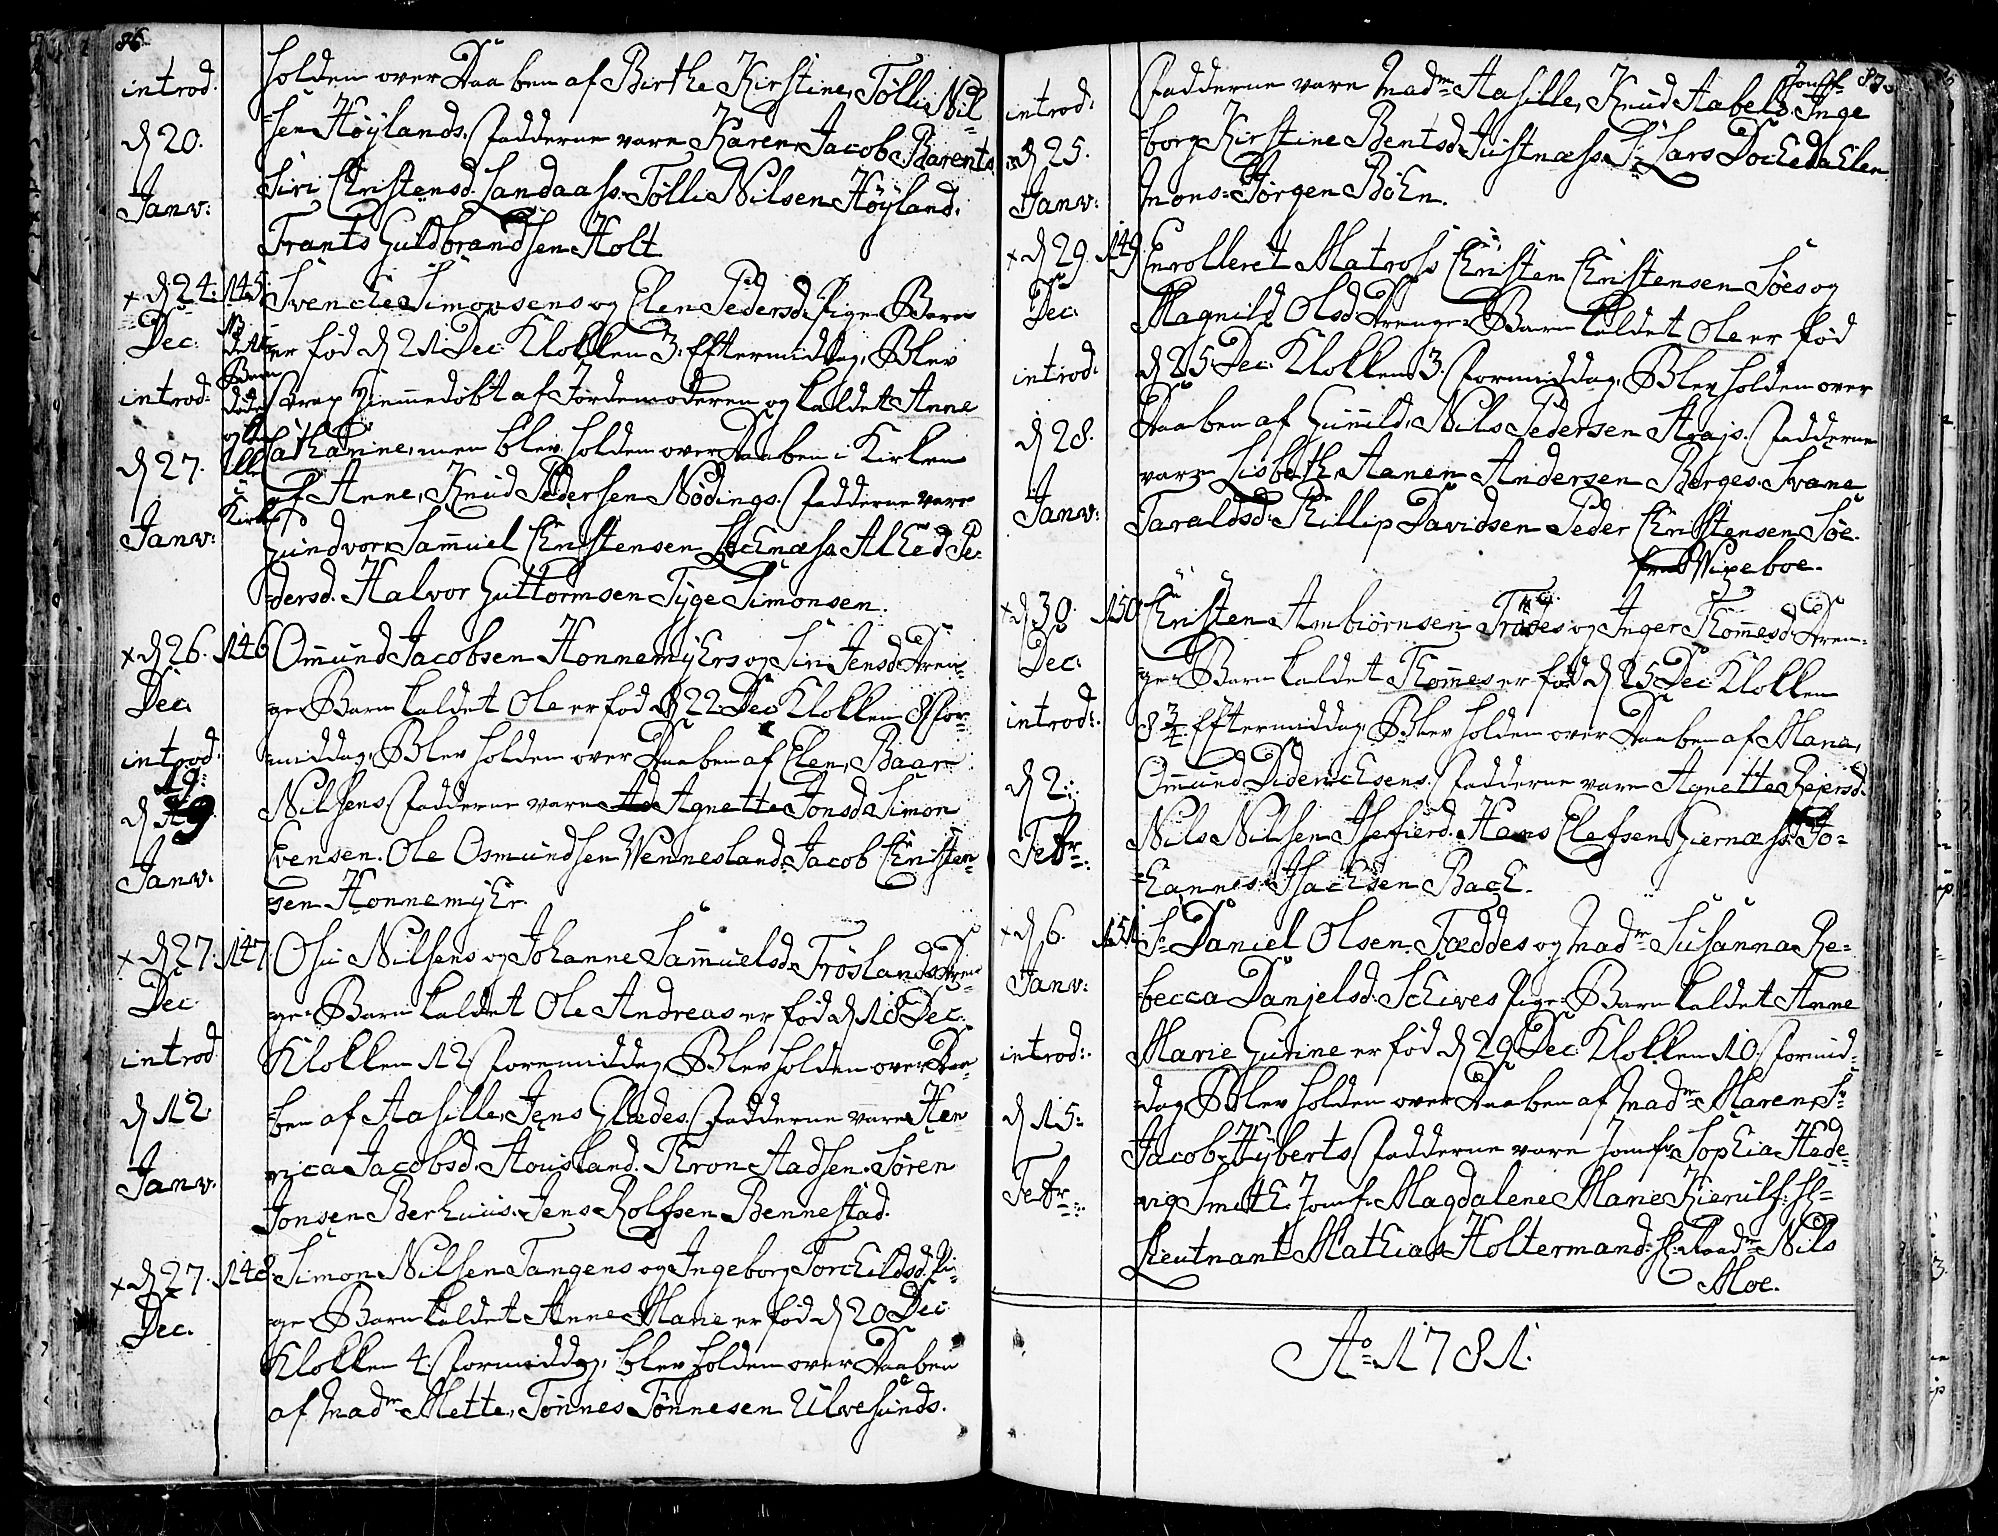 86.
introd:
d 20.
Janv:
holden over Daaben af Birthe Kirstine, Tølli Nil
=sen Høylands. Fadderne vare Karen Jacob Barents
Siri Christensd. Sandaas. Tølli Nilsen Høyland.
Frants Guldbrandsen Holt
+ d 24. 145.
Dec:
introd:
d 27.
Janv:
NB dette Barn døde og
Kirk
Svenche Simonsens og Elen Pedersd. Pige-Barn
er fød d 21 Dec: Klokken 3. Eftermiddag, Blev
strax Hiemmedøbt af Jordemoderen og kaldet Anne
Catharine, men blev holden over Daaben i Kirken
af Anne, Knud Pedersen Nødings. Fadderne vare
Gundvor Samuel Christensen Alhed Pe=
=dersd. Halvor Guttormsen Tyge Simonsen.
+ d 26. 146
Dec:
introd:
d 19
Janv:
Omund Jacobsen Honnemyhrs og Siri Jensd. Dren=
ge-Barn kaldet Ole er fød d 22 Dec Klokken 8 for=
middag, Blev holden over Daaben af Elen, Baar
Nilsens. Fadderne vare Agnette Jonsd. Simon
Evensen. Ole Osmundsen Vennesland. Jacob Christen=
sen Honnemyhr.
+ d 27. 147.
Dec
introd
d 12
Janv:
Nilsens og Johanne Samuelsd. Trøslands Dren=
ge-Barn kaldet Ole Andreas er fød d 18 Dec:
Klokken 12. Foremiddag, Blev holden over Daa=
ben af Aasille, Jens Gledes. Fadderne vare Hen
rica Jacobsd. Aousland. Thron Aadsen. Søren
Jonsen Berhuus. Jens Rolfsen Bennestad.
+ d 27. 148
Dec.
Simon Nilsen Tangens og Ingeborg Torchildsd. Pi=
ge-Barn kaldet Anne Marie er fød d 20 Dec
Klokken 4. Formiddag, blev holden over Daaben
af Madm Mette, Tønnes Tønnesen Ulvesunds.
87.
introd:
d 25.
Janv:
Fadderne vare Madm Aasille, Knud Aabels. Jomf: Inge
=borg Kirstine Bentsd. Justnæs. Sr Lars
Mons: Jørgen Böhn.
+ d 29. 149.
Dec:
introd:
d 28.
Janv:
Enrolleret Matros Christen Christensen Søes og
Magnild Olsd. Drenge-Barn kaldet Ole er fød
d 25 Dec: Klokken 3. Formiddag, Blev holden over
Daaben af Gunild, Nils Pedersen Strais. Fadderne
vare Lisbeth, Aanen Andersen Berges. Svane
Taraldsd. Phillip Davidsen Peder Christensen Søe.
fra Vigeboe.
+ d 30. 150
Dec:
introd:
d 2:
Febr:
Christen Ambiørnsen Trødes og Inger Thomesd. Dren=
ge-Barn kaldet Thommes er fød d 25 Dec Klokken
8 3/4 Eftermiddag, Blev holden over Daaben af Maria,
Omund Diderichsens. Fadderne vare Agnette Reiersd.
Nils Nilsen Aasefierd. Hans Elefsen Giernæs. Jo=
=hannes Isachsen Bach.
+ d 6. 151.
Janv:
introd:
d 15:
Febr:
Sr Daniel Olsen Fæddes og Madm Susanna Re=
=becca Danjelsd. Schives Pige-Barn kaldet Anne
Marie Gurine er fød d 29 Dec Klokken 10. Formid=
=dag, Blev holden over Daaben af Madm Maren, Sr
Jacob Hyberts. Fadderne vare Jomfr Sophia Hede=
=vig Smith. Jomf: Magdalene Marie Kierulf. Hr
Lieutnant Mathias Holtermand. Nils
Moe.
Ao 1781.